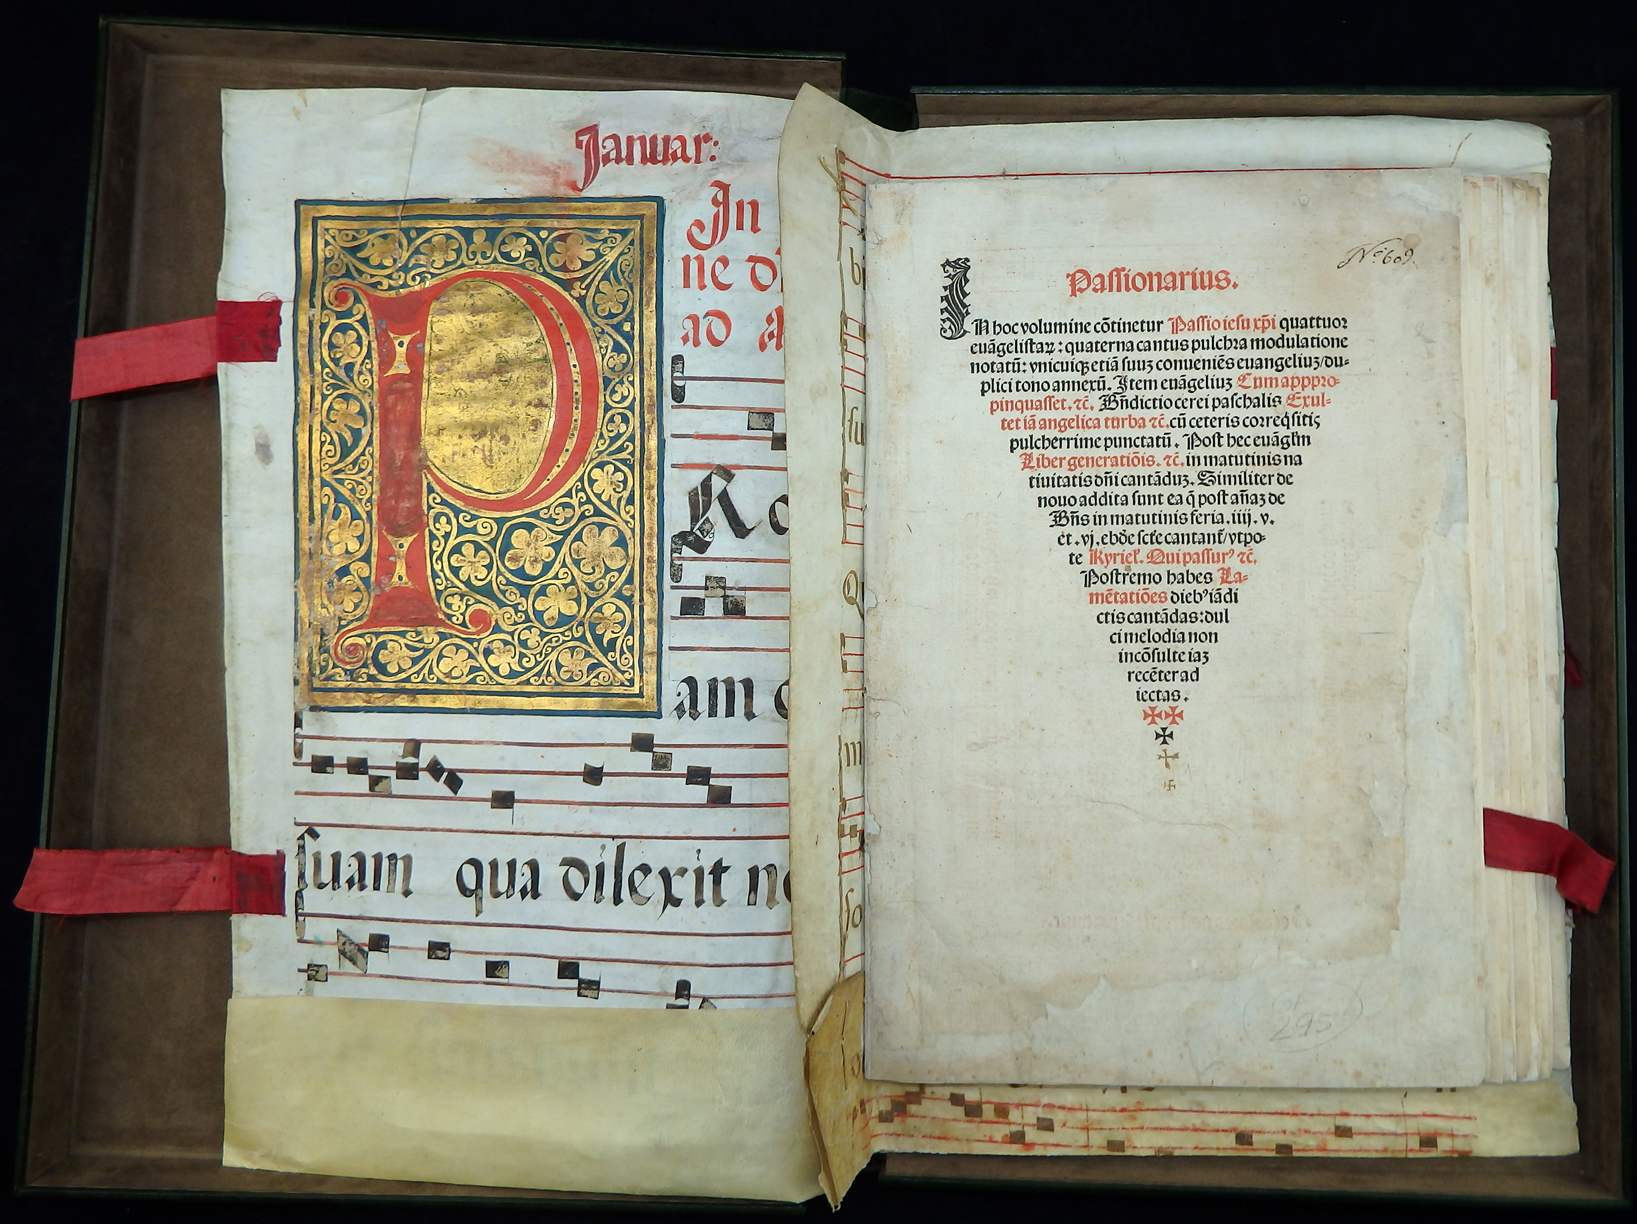 Januar:
In
ne di
ad a
P
Ro
am
suam qua dilexit no
Nº 609.
Passionarius.
IN hoc volumine cõtinetur Passio iesu xp̃i quattuor
euãgelistaꝝ: quaterna cantus pulchra modulatione
notatũ: vnicuiqꝫ etiã suuꝫ conueniẽs euangeliuꝫ/du-
plici tono annexũ. Item euãgeliuꝫ Cum apppro-
pinquasset. ⁊c̃. Bñdictio cerei paschalis Exul-
tet iã angelica turba ⁊c̃. cũ ceteris correq̃sitis
pulcherrime punctatũ. Post hec euãgl̃m
Liber generatiõis. ⁊c̃. in matutinis na
tiuitatis dñi cantãduꝫ. Similiter de
nouo addita sunt ea q̃ post añaꝫ de
Bñs in matutinis feria. iiij. v.
et. vj. ebde sc̃te cantant̃/vtpo-
te Kyriel̃. Qui passurꝰ ⁊c̃.
Postremo habes La-
mẽtatiões diebꝰ iã di
ctis cantãdas: dul
ci melodia non
incõsulte iaꝫ
recẽter ad
iectas.
295
b
su
Q
m
so